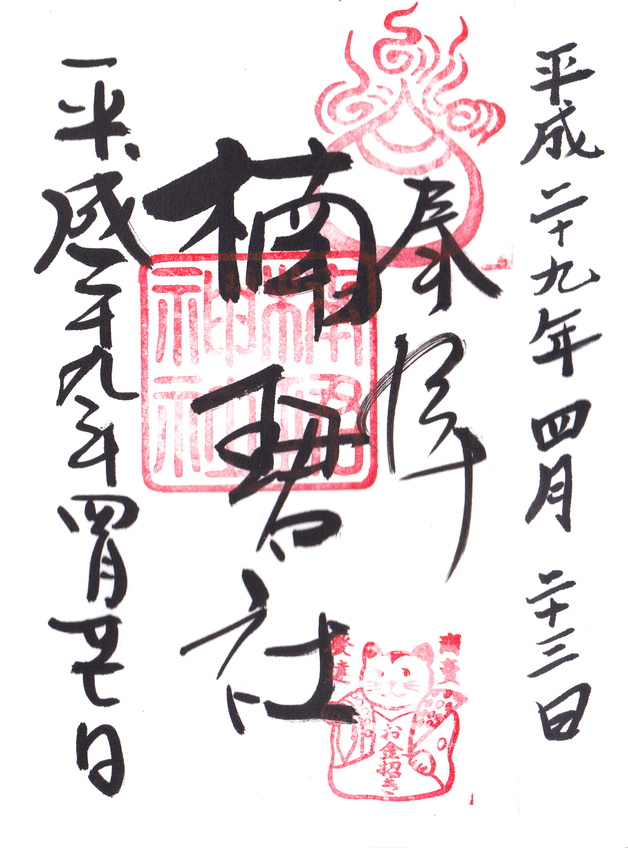 平成二十九年四月二十三日
奉拝
楠珺社
楠珺神社
お金招き
平成二十九年四月廿七日